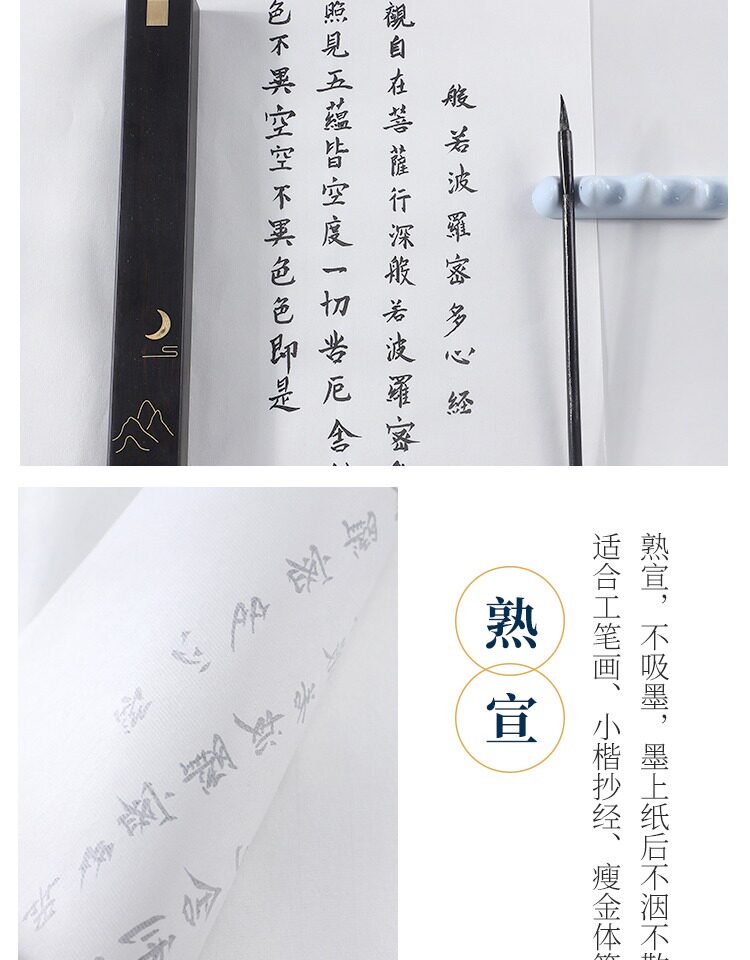 般若波羅密多心經
觀自在菩薩行深般若波羅密
照見五蘊皆空度一切苦厄舍
色不異空空不異色色即是
熟宣
熟宣，不吸墨，墨上纸后不洇不散
适合工笔画、小楷抄经、瘦金体等